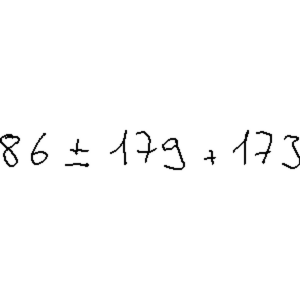 86 ± 179 + 173